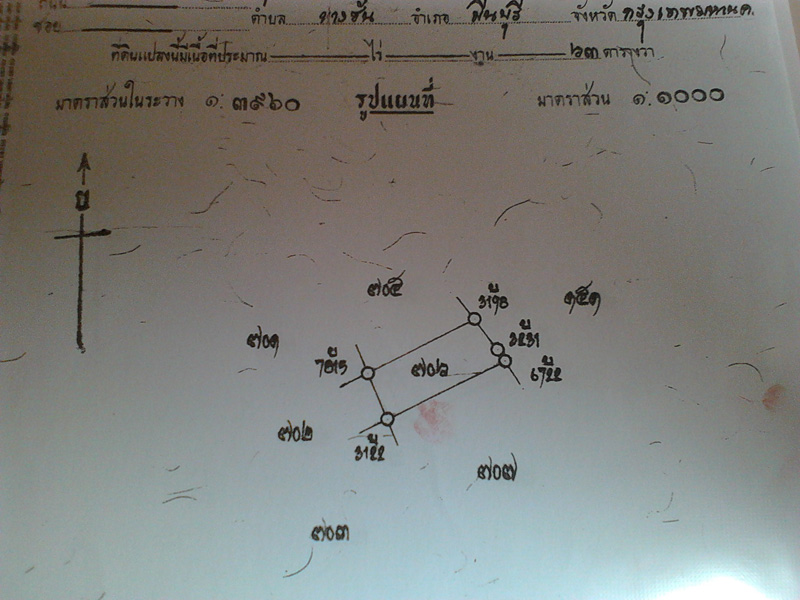 ถนน
ซอย ตำบล บางชัน อำเภอ มีนบุรี จังหวัด กรุงเทพมหานคร
ที่ดินแปลงนี้มีเนื้อที่ประมาณ ไร่ งาน ๖๓ ตารางวา
มาตราส่วนในระวาง ๑: ๓๙๖๐ รูปแผนที่ มาตราส่วน ๑: ๑๐๐๐
น
๗๐๕
๑๕๑
๗๐๑
๗๐๖
๗๐๒
๗๐๗
๗๐๓